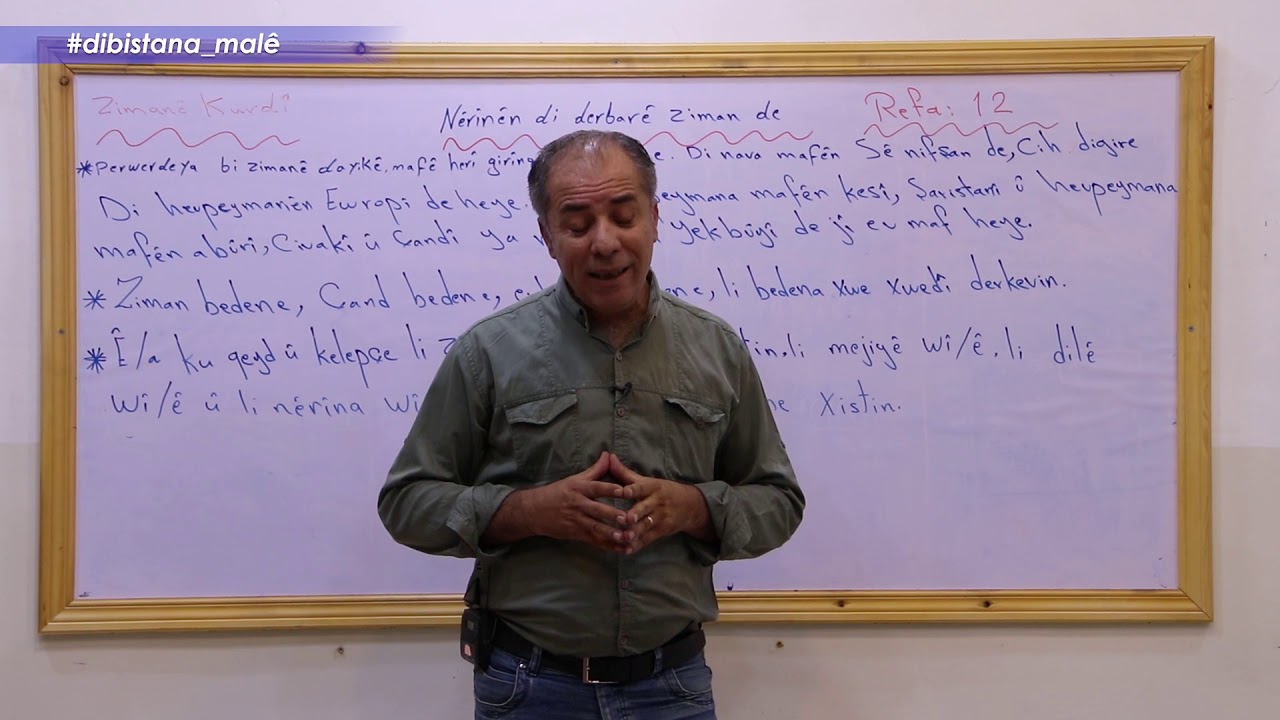 #dibistana_malê
Zimanê Kurdî
Nêrînên di derbarê ziman de
Refa: 12
*Perwerdeya bi zimanê dayikê, mafê herî giring e. Di nava mafên Sê nifşan de, Cih digire
Di hevpeymanên Ewropî de heye. peymana mafên kesî, Şaristanî û hevpeymana
mafên abûrî, Civakî û Çandî ya yekbûyî de jî ev maf heye.
* Ziman bedene, Çand bedene, ene, li bedena xwe xwedî derkevin.
* Ê/a ku qeyd û kelepçe li tin, li mejiyê wî/ê, li dilê
wî/ê û li nêrîna wî xistin.